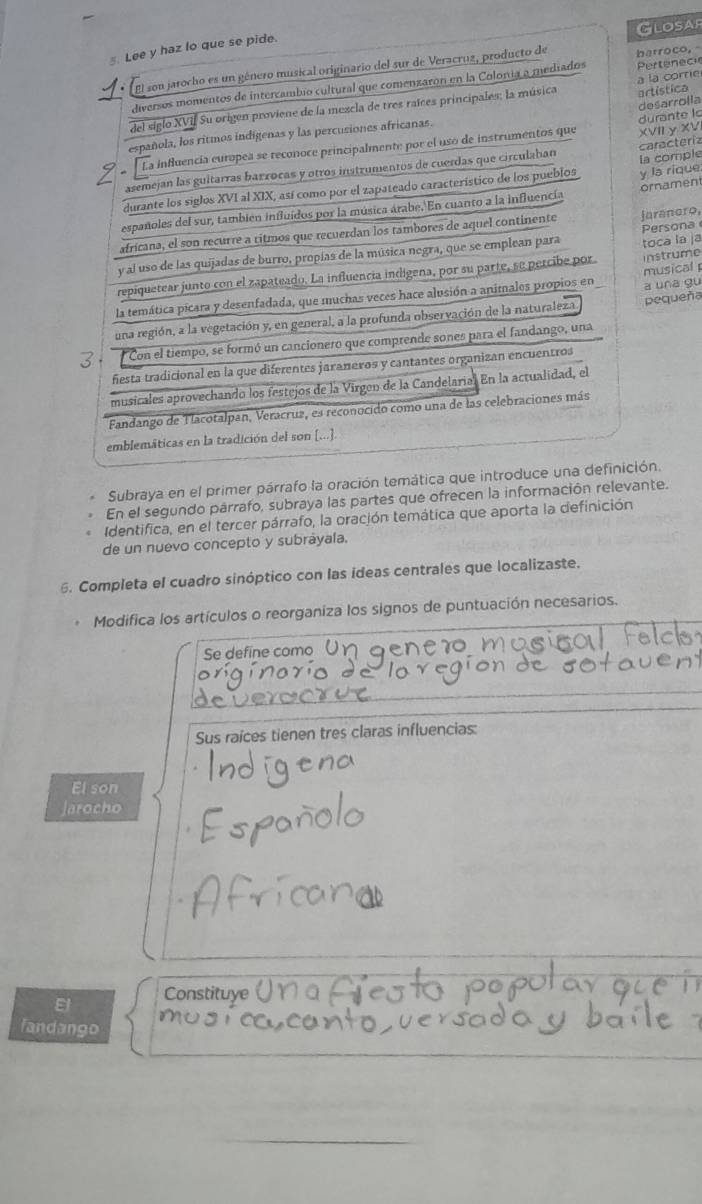 GLOSAR
5. Lee y haz lo que se pide.
1. El son jarocho es un género musical originario del sur de Veracruz, producto de
diversos momentos de intercambio cultural que comenzaron en la Colonia a mediados
del siglo XVI. Su origen proviene de la mezcla de tres raíces principales: la música
española, los ritmos indígenas y las percusiones africanas.
2 - La influencia europea se reconoce principalmente por el uso de instrumentos que
asemejan las guitarras barrocas y otros instrumentos de cuerdas que circulaban
durante los siglos XVI al XIX, así como por el zapateado característico de los pueblos
españoles del sur, tambien influidos por la música árabe. En cuanto a la influencia
africana, el son recurre a ritmos que recuerdan los tambores de aquel continente
y al uso de las quijadas de burro, propias de la música negra, que se emplean para
repiquetear junto con el zapateado. La influencia indígena, por su parte, se percibe por
la temática pícara y desenfadada, que muchas veces hace alusión a animales propios en
una región, a la vegetación y, en general, a la profunda observación de la naturaleza.
3. Con el tiempo, se formó un cancionero que comprende sones para el fandango, una
fiesta tradicional en la que diferentes jaraneros y cantantes organizan encuentros
musicales aprovechando los festejos de la Virgen de la Candelaria. En la actualidad, el
Fandango de Tlacotalpan, Veracruz, es reconocido como una de las celebraciones más
emblemáticas en la tradición del son [...].
barroco, -
Pertenecie
a la corrie
artística
desarrolla
durante lo
XVII y XV
caracteriz
la comple
y la rique
ornament
jaranero,
Persona
toca la ja
instrume
musical p
a una gu
pequeña
• Subraya en el primer párrafo la oración temática que introduce una definición.
• En el segundo párrafo, subraya las partes que ofrecen la información relevante.
• Identifica, en el tercer párrafo, la oración temática que aporta la definición
de un nuevo concepto y subráyala.
6. Completa el cuadro sinóptico con las ideas centrales que localizaste.
• Modifica los artículos o reorganiza los signos de puntuación necesarios.
Se define como Un genero musical folclor
originario de la region de sotavent
de veracruz
Sus raíces tienen tres claras influencias:
El son
jarocho
• Indigena
• Española
• Africana
El
fandango
Constituye Una fiesta popular que in
musica, canto, versada y baile